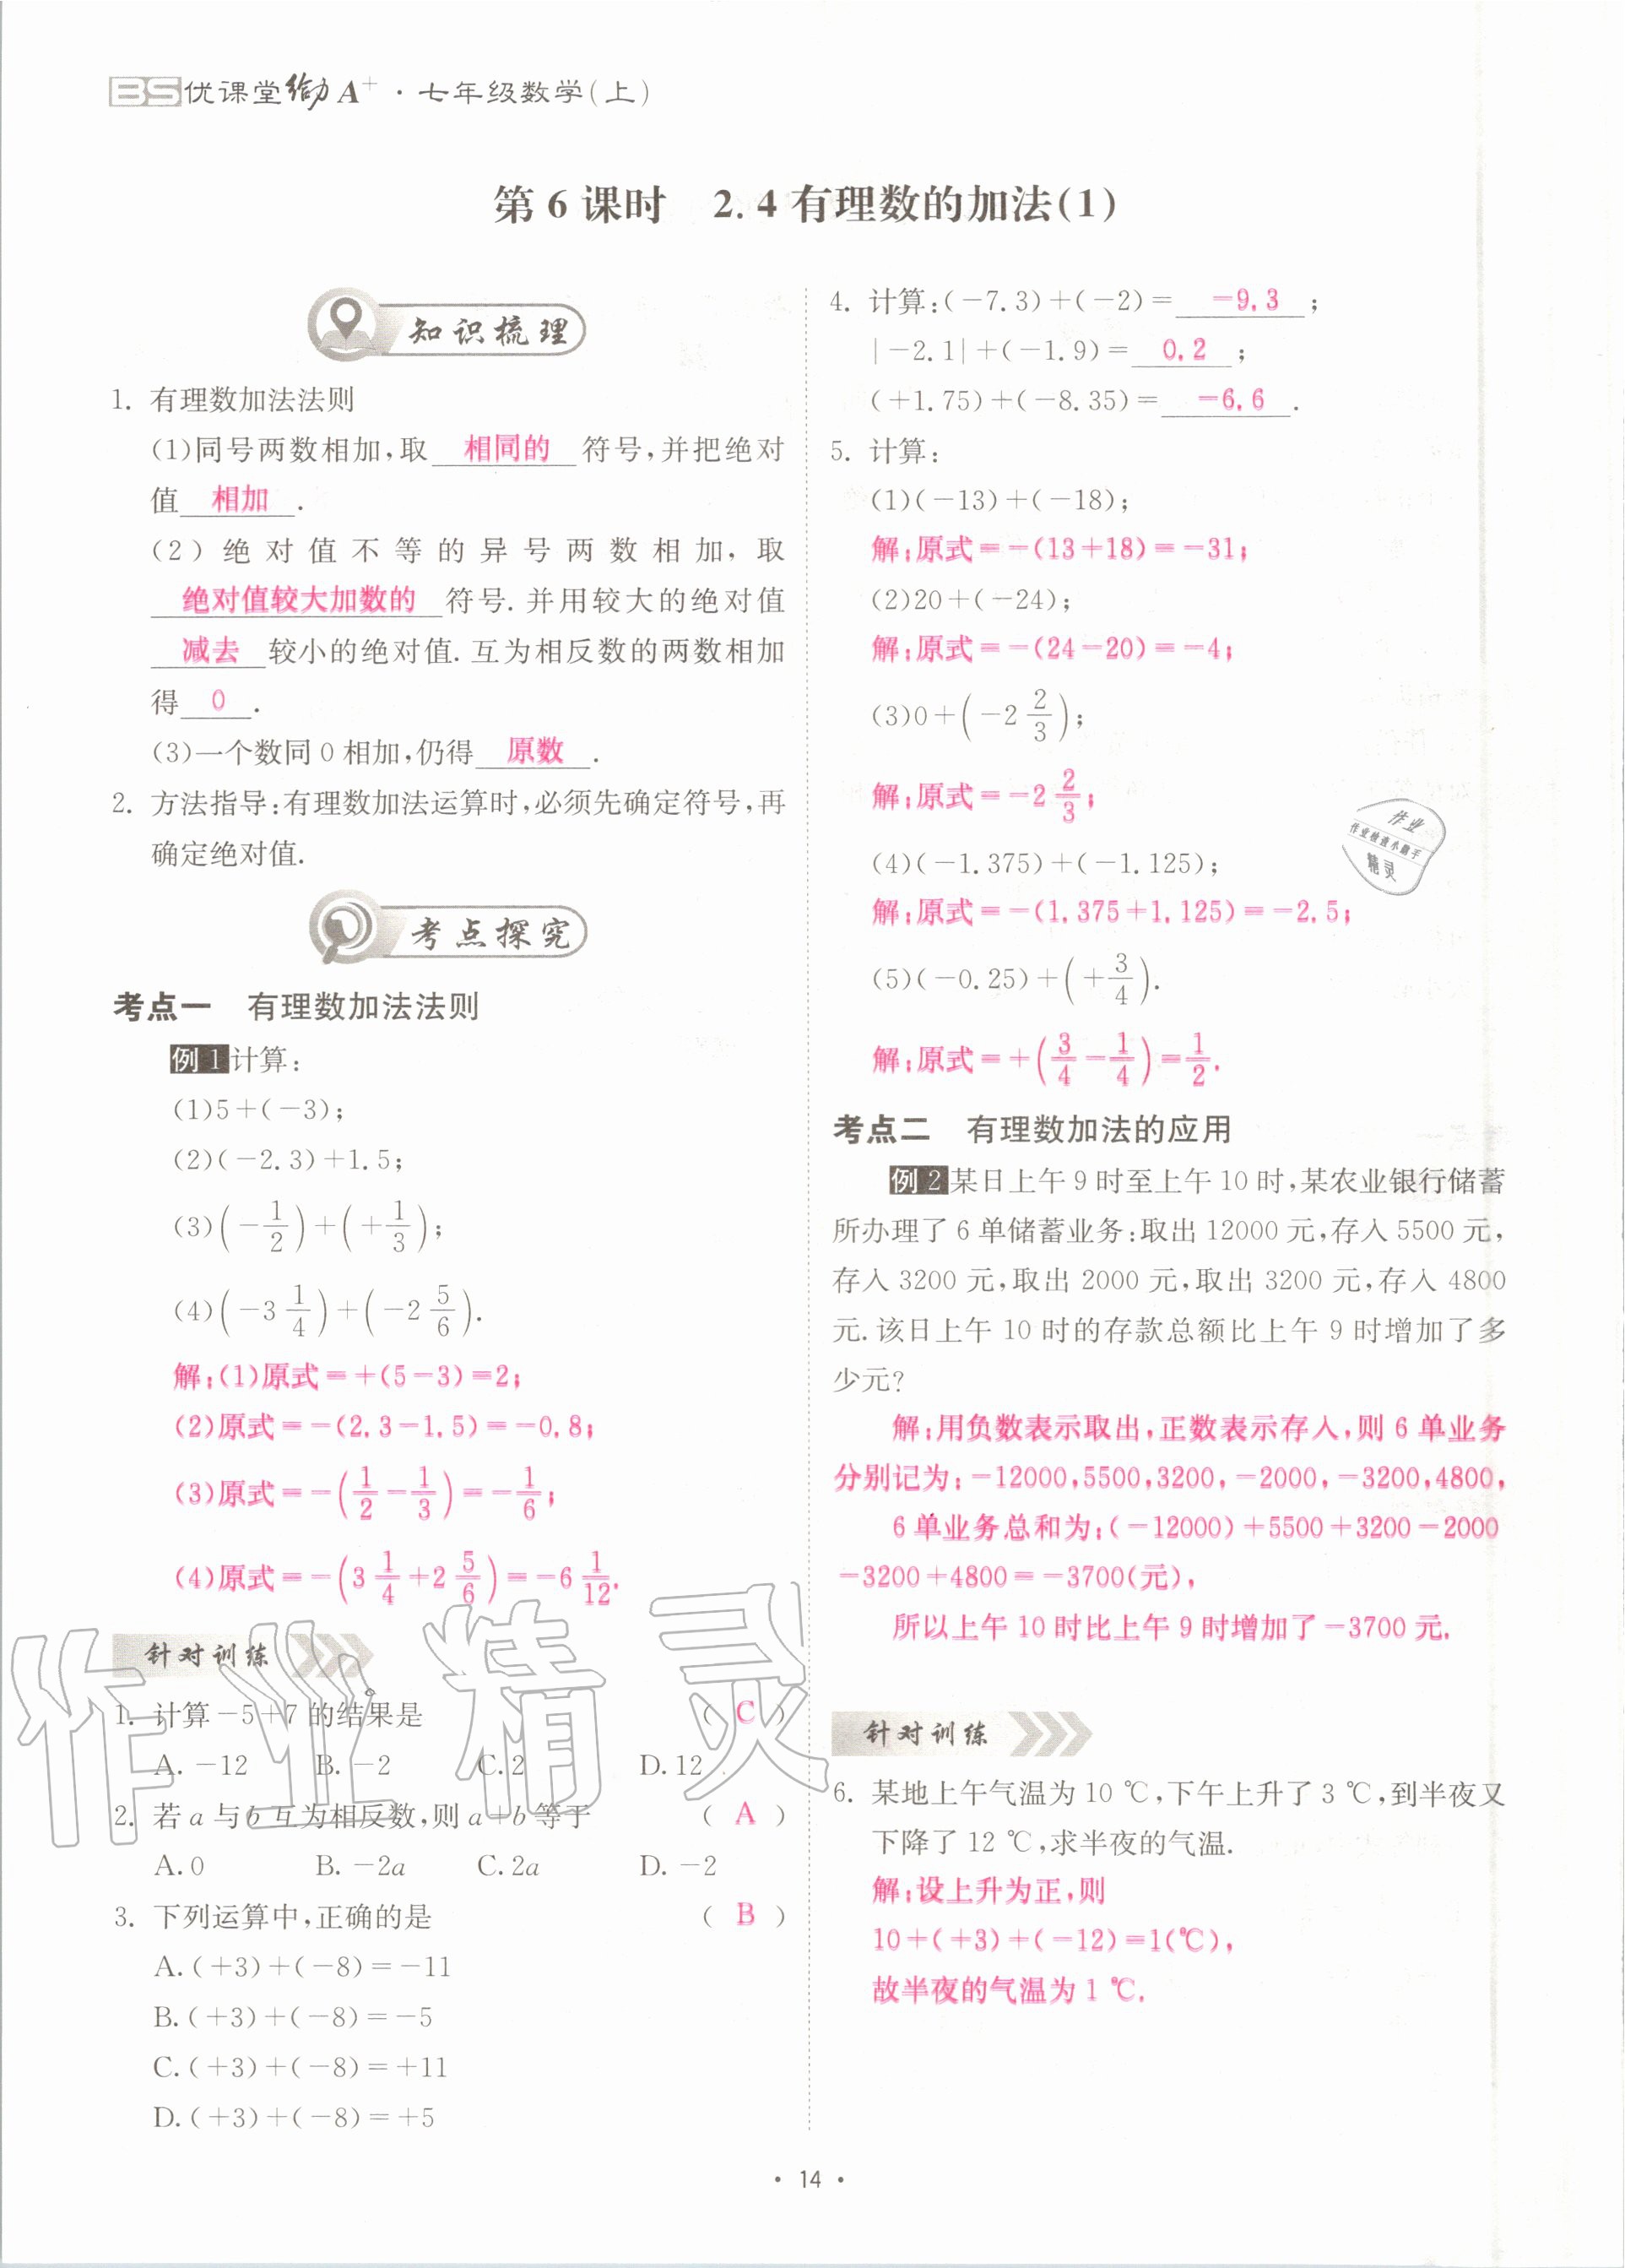 BS优课堂给力A⁺·七年级数学(上)
第6课时 2.4有理数的加法(1)
知识梳理
1. 有理数加法法则
(1)同号两数相加,取 相同的 符号,并把绝对
值 相加 .
(2)绝对值不等的异号两数相加,取
绝对值较大加数的 符号.并用较大的绝对值
减去 较小的绝对值.互为相反数的两数相加
得 0 .
(3)一个数同0相加,仍得 原数 .
2. 方法指导:有理数加法运算时,必须先确定符号,再
确定绝对值.
考点探究
考点一 有理数加法法则
例1 计算:
(1)5+(-3);
(2)(-2.3)+1.5;
(3)(-1/2)+(+1/3);
(4)(-3 1/4)+(-2 5/6).
解:(1)原式=+(5-3)=2;
(2)原式=-(2.3-1.5)=-0.8;
(3)原式=-(1/2-1/3)=-1/6;
(4)原式=-(3 1/4+2 5/6)=-6 1/12.
针对训练
1. 计算-5+7的结果是 ( C )
A. -12 B. -2 C. 2 D. 12
2. 若a与b互为相反数,则a+b等于 ( A )
A. 0 B. -2a C. 2a D. -2
3. 下列运算中,正确的是 ( B )
A. (+3)+(-8)=-11
B. (+3)+(-8)=-5
C. (+3)+(-8)=+11
D. (+3)+(-8)=+5
4. 计算:(-7.3)+(-2)= -9.3 ;
|-2.1|+(-1.9)= 0.2 ;
(+1.75)+(-8.35)= -6.6 .
5. 计算:
(1)(-13)+(-18);
解:原式=-(13+18)=-31;
(2)20+(-24);
解:原式=-(24-20)=-4;
(3)0+(-2 2/3);
解:原式=-2 2/3;
(4)(-1.375)+(-1.125);
解:原式=-(1.375+1.125)=-2.5;
(5)(-0.25)+(+3/4).
解:原式=+(3/4-1/4)=1/2.
考点二 有理数加法的应用
例2 某日上午9时至上午10时,某农业银行储蓄
所办理了6单储蓄业务:取出12000元,存入5500元,
存入3200元,取出2000元,取出3200元,存入4800
元.该日上午10时的存款总额比上午9时增加了多
少元?
解:用负数表示取出,正数表示存入,则6单业务
分别记为:-12000,5500,3200,-2000,-3200,4800,
6单业务总和为:(-12000)+5500+3200-2000
-3200+4800=-3700(元),
所以上午10时比上午9时增加了-3700元.
针对训练
6. 某地上午气温为10 ℃,下午上升了3 ℃,到半夜又
下降了12 ℃,求半夜的气温.
解:设上升为正,则
10+(+3)+(-12)=1(℃),
故半夜的气温为1 ℃.
作业
作业检查小助手
精灵
作业精灵
· 14 ·